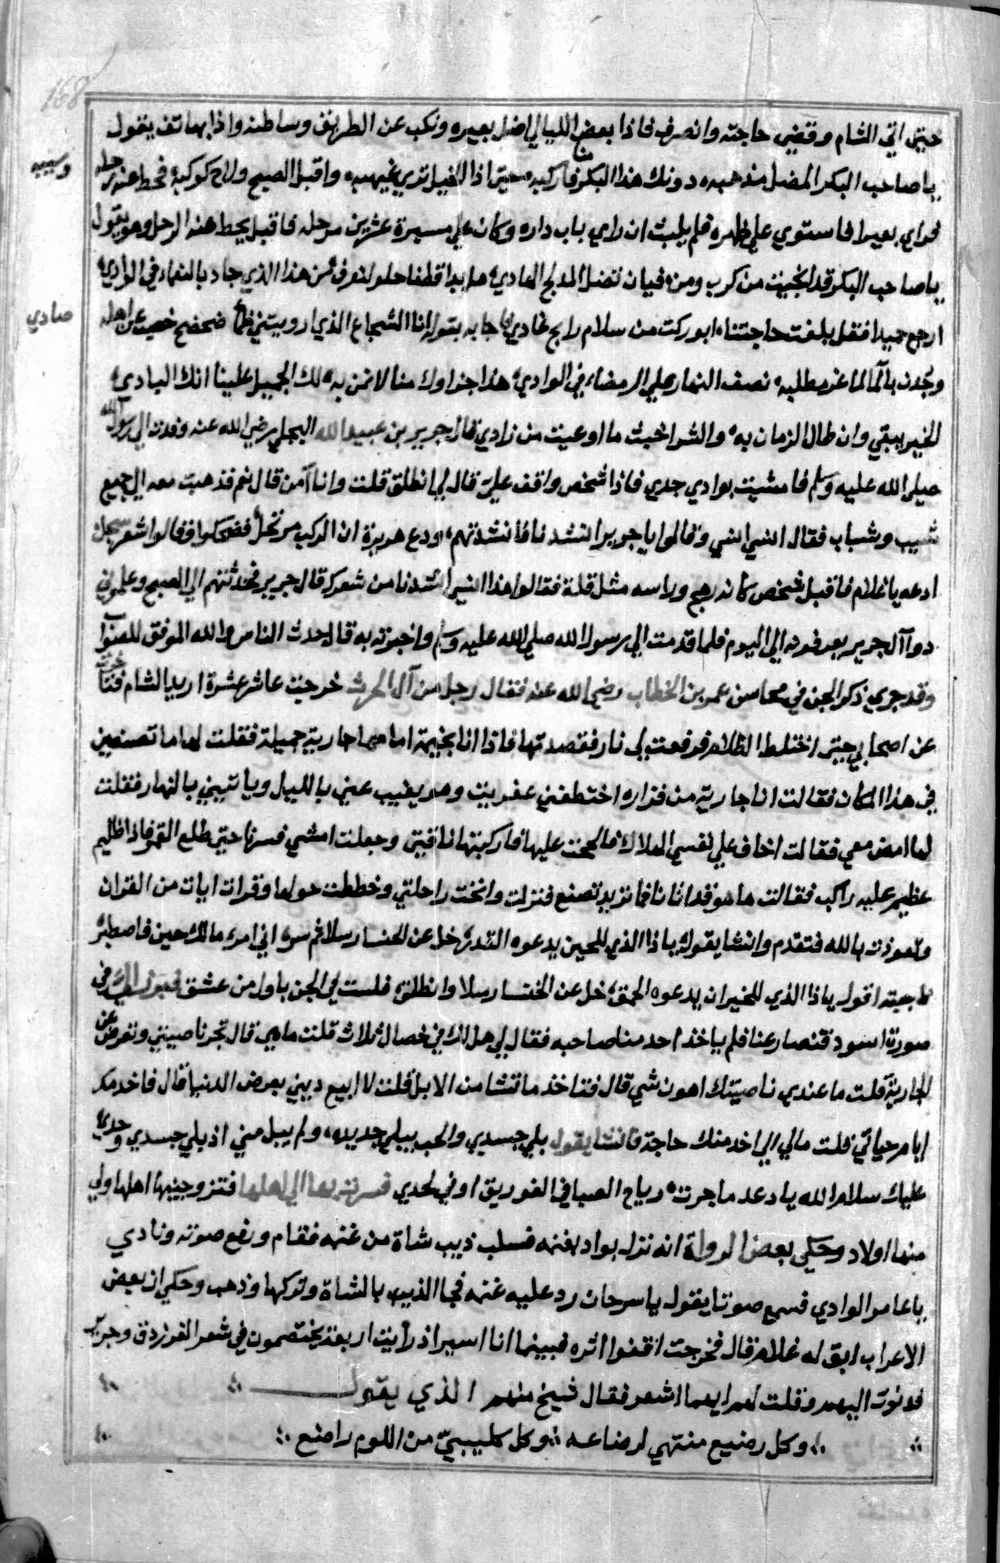 168
حتى اتى الشام وقضى حاجته وانصرف فاذا بعض الليالي اضل بعيره ونكب عن الطريق وساطنه واذا بهاتف يقول
يا صاحب البكر المضل مذهبه دونك هذا البكر فاركبه حتى اذا الليل تري غيهبه واقبل الصبح ولاح كوكبه فحط عنه رحله
وسيبه
فراي بعيرا فاستوي على ظهره فلم يلبث ان راي باب داره وكان علي مسيرة عشرين مرحله فاقبل يحط عنه الرحل وهو يقول
يا صاحب البكر قد انجيت من كرب ومن فيان تضل المدلج الهادي من هذا الذي جاد بالنعماء في الوادي
ارجع حميدا فقد بلغت حاجتنا بوركت من سلام رايح غادي فاجابه بقوله انا الشجاع الذي ارويتني ظمأ ضحضح عن اهله
صادي
وجدت بالما لما عز مطلبه نصف النهار علي الرمضاء في الوادي هذا جزاوك منا لا نمن به لك الجميل علينا انك البادي
الخير يبقي وان طال الزمان به والشر اخبث ما اوعيت من زادي قال جرير بن عبد الله البجلي رضي الله عنه وفدت الي رسول الله
صلى الله عليه وسلم فامسيت بوادي فاذا شخص واقف علي قال لي انطلق قلت وانا آمن قال نعم فذهبت معه الى جميع
شيب وشباب فقال انسي انسي وقالوا يا جرير انشدنا فانشدتهم ودع هريرة ان الركب مرتحل فضحكوا وقالوا شعر
ادعه يا غلام فاقبل شخص كانه رمح وراسه مثل قلة فقالوا هذا انسي انشدنا من شعرك قال جرير فحدثتهم الي الصبح وعلموني
دواآ آل جرير يعرفونه الى اليوم فلما قدمت الي رسول الله صلى الله عليه وسلم واخبرته به قال حدث الناس والله الموفق للصواب
وقد جري ذكر الجن في مجلس عمر بن الخطاب رضي الله عنه فقال رجل من آل الحرث خرجت عاشر عشرة اريد الشام فتاخرت
عن اصحابي حتى اختلط الظلام فرفعت لي نار فقصدتها فاذا انا بخيمة امامها جارية جميلة فقلت لها ما تصنعين
في هذا المكان فقالت انا جارية من فزاره اختطفني عفريت وهو يغيب عني بالليل وياتيني بالنهار فقلت
لها امض معي فقالت اخاف علي نفسي الهلاك فالححت عليها فاركبتها ناقتي وجعلت امشي فسرنا حتى طلع القمر فاذا ظليم
عظيم عليه راكب فقالت ها هو قد اتانا فما تريد تصنع فنزلت وانخت راحلتي وخططت حولها وقرات ايات من القران
وتعوذت بالله فتقدم وانشا يقول يا ذا الذي للحين يدعوه القدر خل عن الحسنا رسلا ثم سر اني امرء مالك حين فاصطبر
فاجبته اقول يا ذا الذي للحين يدعوه الحمق خل عن الحسنا رسلا وانطلق فلست في الجن باول من عشق في
صورة اسود فتصارعنا فلم ياخذ احد منا صاحبه فقال لي هل لك في خصال ثلاث قلت ما هي قال تجز ناصيتي وتعرض عن
الجارية قلت ما عندي ناصيتك اهون شي قال فتاخذ ما تشا من الابل قلت لا ابيع ديني بعرض الدنيا قال فاخدمك
ايام حياتي قلت مالي الي اخدمتك حاجة فانشا يقول بلي جسدي والحب يبلي جديده ولم يبل مني اذ بلي جسدي وجدي
عليك سلام الله يا دعد ما جرت رياح الصبا في الغور او في نجد فسرت بها الي اهلها فتزوجنيها اهلها ولي
منها اولاد وحكي بعض الرواة انه نزل بواد بغنمه فسلب ذيب شاة من غنمه فقام ورفع صوته ونادي
يا عامر الوادي فسمع صوتا يقول يا سرحان رد عليه غنمه فجا الذيب بالشاة وتركها وذهب وحكي ان بعض
الاعراب ابق له غلام قال فخرجت اقفوا اثره فبينما انا اسير اذ رأيت اربعة يختصمون في شعر الفرزدق وجرير
فدنوت اليهم وقلت لهم ايهما اشعر فقال شيخ منهم الذي يقول
وكل رضيع منتهي لرضاعه وكل كليبي من اللوم راضع